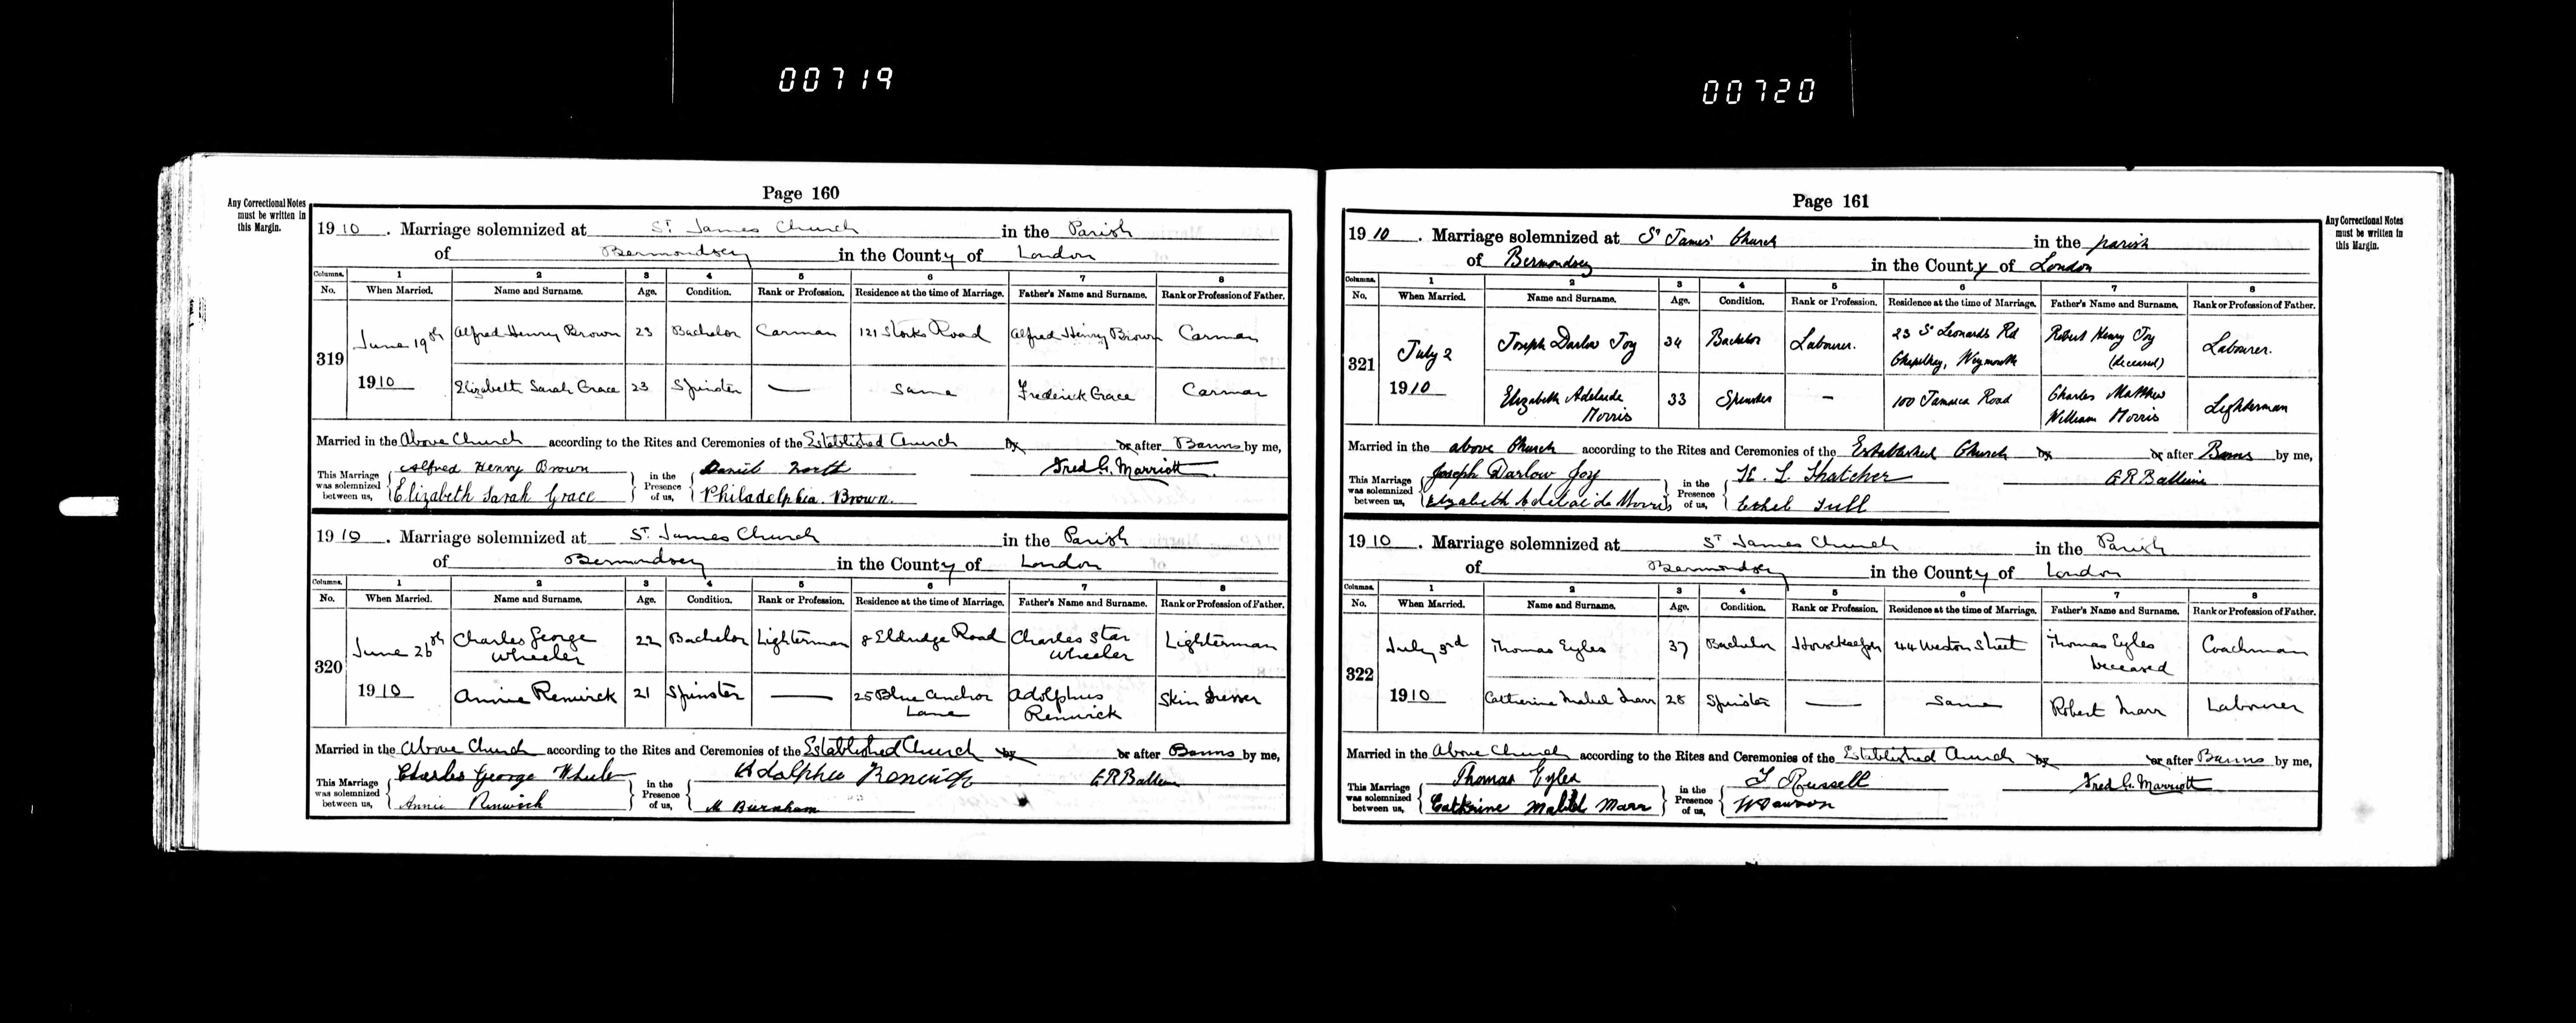 00719
00720
Page 160
Any Correctional Notes
must be written in
this Margin.
1910. Marriage solemnized at St. James Church in the Parish
of Bermondsey in the County of London
Columns. 1 2 3 4 5 6 7 8
No. When Married. Name and Surname. Age. Condition. Rank or Profession. Residence at the time of Marriage. Father's Name and Surname. Rank or Profession of Father.
319 June 19th 1910 Alfred Henry Brown 23 Bachelor Carman 121 Storks Road Alfred Henry Brown Carman
Elizabeth Sarah Grace 23 Spinster — Same Frederick Grace Carman
Married in the Above Church according to the Rites and Ceremonies of the Established Church by or after Banns by me,
This Marriage was solemnized between us, Alfred Henry Brown in the Presence of us, Daniel North Fred G. Marriott
Elizabeth Sarah Grace Philadelphia Brown.
1910. Marriage solemnized at St. James Church in the Parish
of Bermondsey in the County of London
Columns. 1 2 3 4 5 6 7 8
No. When Married. Name and Surname. Age. Condition. Rank or Profession. Residence at the time of Marriage. Father's Name and Surname. Rank or Profession of Father.
320 June 26th 1910 Charles George Wheeler 22 Bachelor Lighterman 8 Eldridge Road Charles Star Wheeler Lighterman
Annie Renwick 21 Spinster — 25 Blue Anchor Lane Adolphus Renwick Skin Dresser
Married in the Above Church according to the Rites and Ceremonies of the Established Church by or after Banns by me,
This Marriage was solemnized between us, Charles George Wheeler in the Presence of us, Adolphus Renwick G R Balleine
Annie Renwick M Burnham
Page 161
Any Correctional Notes
must be written in
this Margin.
1910. Marriage solemnized at St James' Church in the parish
of Bermondsey in the County of London
Columns. 1 2 3 4 5 6 7 8
No. When Married. Name and Surname. Age. Condition. Rank or Profession. Residence at the time of Marriage. Father's Name and Surname. Rank or Profession of Father.
321 July 2 1910 Joseph Darlow Joy 34 Bachelor Labourer. 23 St Leonards Rd Chapelhay, Weymouth Robert Henry Joy (deceased) Labourer.
Elizabeth Adelaide Morris 33 Spinster — 100 Jamaica Road Charles Matthew William Morris Lighterman
Married in the above Church according to the Rites and Ceremonies of the Established Church by or after Banns by me,
This Marriage was solemnized between us, Joseph Darlow Joy in the Presence of us, L. Thatcher G R Balleine
Elizabeth Adelaide Morris Ethel Tull
1910. Marriage solemnized at St James Church in the Parish
of Bermondsey in the County of London
Columns. 1 2 3 4 5 6 7 8
No. When Married. Name and Surname. Age. Condition. Rank or Profession. Residence at the time of Marriage. Father's Name and Surname. Rank or Profession of Father.
322 July 3rd 1910 Thomas Eyles 37 Bachelor Housekeeper 44 Weston Street Thomas Eyles Deceased Coachman
Catherine Mabel Marr 28 Spinster — Same Robert Marr Labourer
Married in the Above Church according to the Rites and Ceremonies of the Established Church by or after Banns by me,
This Marriage was solemnized between us, Thomas Eyles in the Presence of us, T Russell Fred G. Marriott
Catherine Mabel Marr W Dawson